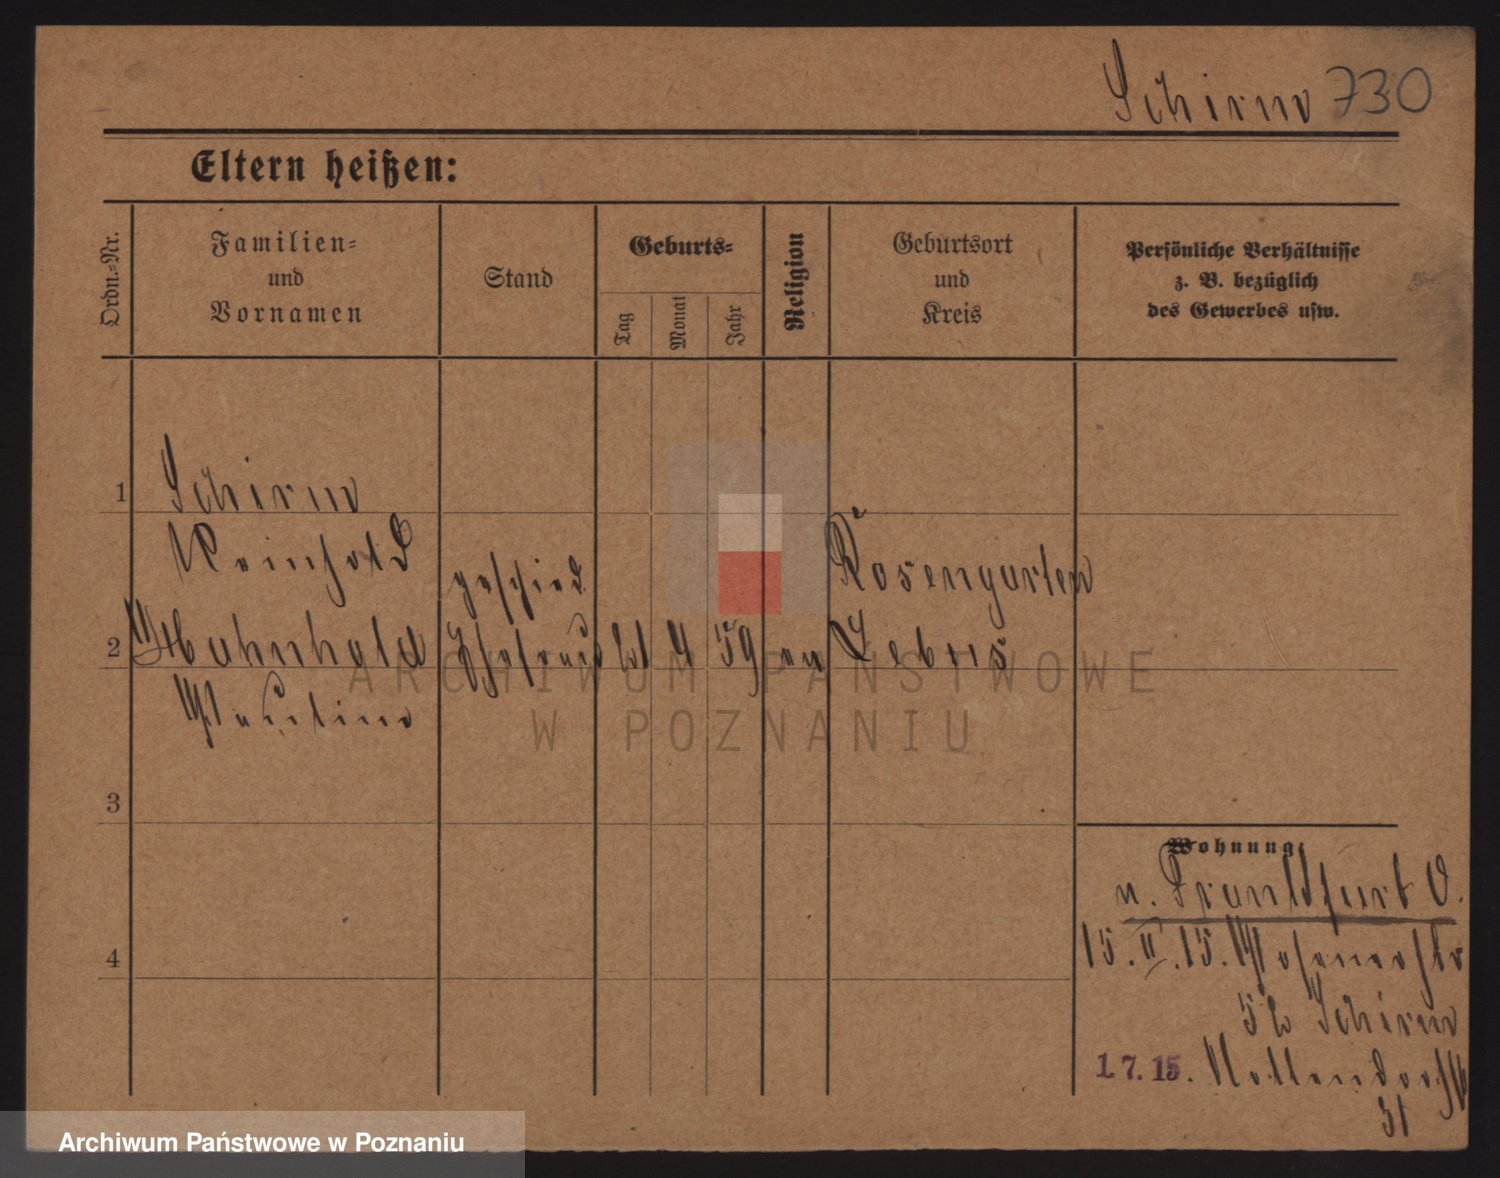 Schirm 730
Eltern heißen:
Ordn.=Nr.
Familien=
und
Vornamen
Stand
Geburts=
Tag
Monat
Jahr
Religion
Geburtsort
und
Kreis
Persönliche Verhältnisse
z. B. bezüglich
des Gewerbes usw.
1
Schirm
Reinhold
geschied
Rosengarten
2
Ehefrau
4 59 ev Lebus
Pauline
ARCHIWUM PAŃSTWOWE
W POZNANIU
3
Wohnung:
n. Frankfurt O.
4
15. II. 15. Posenerstr
Schirm
1.7.15. Nollendorf
31
Archiwum Państwowe w Poznaniu